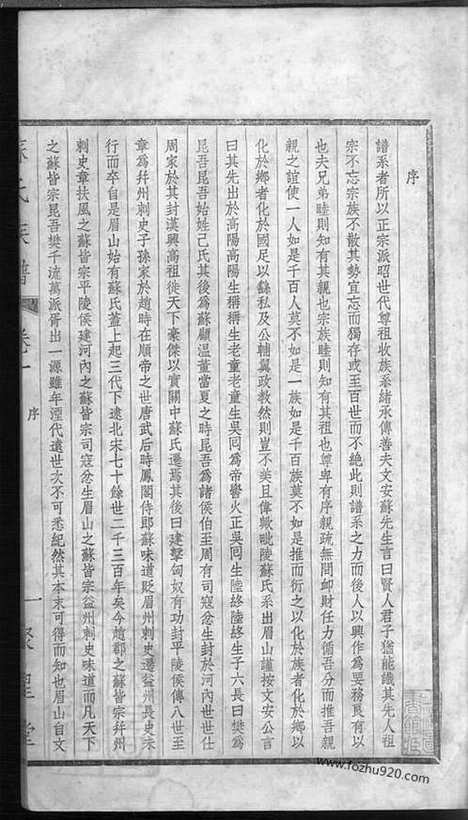 序
譜系者所以正宗派昭世代尊祖收族系緒承傳善夫文安蘇先生言曰賢人君子猶能識其先人祖
宗不忘宗族不散其勢宜忘而獨存或至百世而不絶此則譜系之力而後人以興作為要務良有以
也夫兄弟睦則知有其親也宗族睦則知有其祖也尊卑有序親疏無間卹財任力循吾分而推吾親
親之誼使一人如是千百人莫不如是一族如是千百族莫不如是推而衍之以化於族者化於鄉以
化於鄉者化於國足以繇私及公輔翼政教然則豈不美且偉歟毗陵蘇氏系出眉山謹按文安公言
曰其先出於高陽高陽生稱稱生老童老童生吳囘為帝嚳火正吳囘生陸終陸終生子六長曰樊為
昆吾昆吾始姓己氏其後為蘇顧溫董當夏之時昆吾為諸侯伯至周有司寇忿生封於河內世世仕
周家於其封漢興高祖徙天下豪傑以實關中蘇氏遷焉其後曰建擊匈奴有功封平陵侯傳八世至
章為幷州刺史子孫家於趙時在順帝之世唐武后時鳳閣侍郎蘇味道貶眉州刺史遷益州長史未
行而卒自是眉山始有蘇氏蓋上起三代下逮北宋七十餘世二千三百年矣今趙郡之蘇皆宗幷州
刺史章扶風之蘇皆宗平陵侯建河內之蘇皆宗司寇忿生眉山之蘇皆宗益州刺史味道而凡天下
之蘇皆宗昆吾樊千流萬派胥出一源雖年湮代遠世次不可悉紀然其本末可得而知也眉山自文
蘇氏族譜
卷一
序
一
www.fozhu920.com